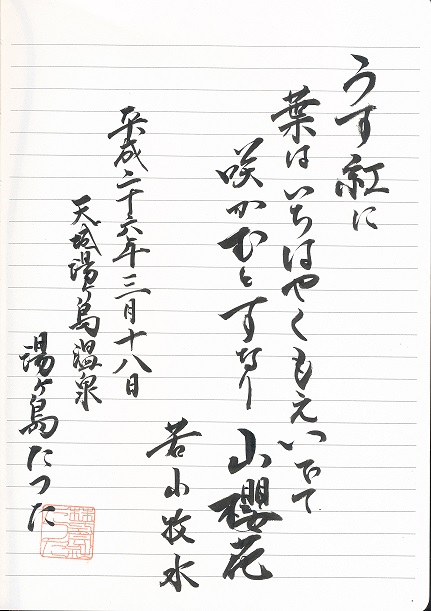 うす紅に
葉はいちはやくもえいでて
咲かむとすなり山櫻花
若山牧水
平成二十六年三月十八日
天城湯ヶ島温泉
湯ヶ島たつた